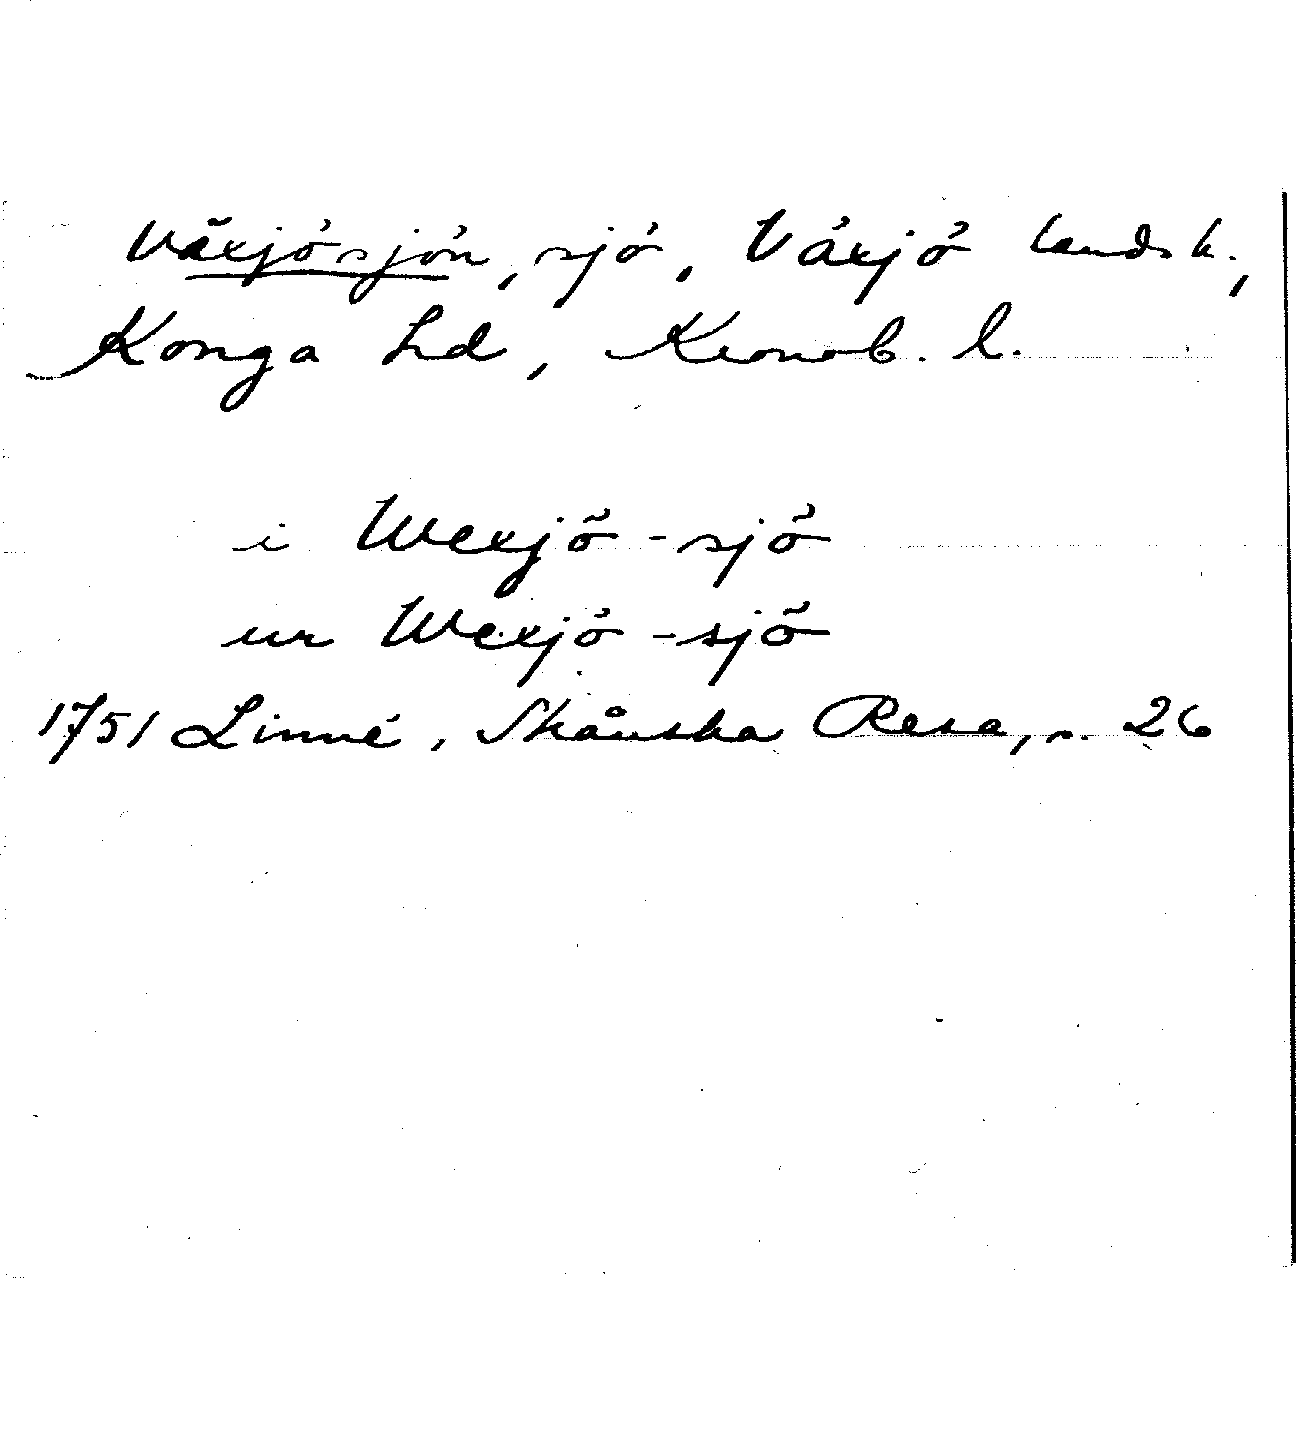 Växjösjön, sjö, Växjö landsk.,
Konga hd, Kronob. l.
i Wexjö-sjö
ur Wexjö-sjö
1751 Linné, Skånska Resa, s. 26